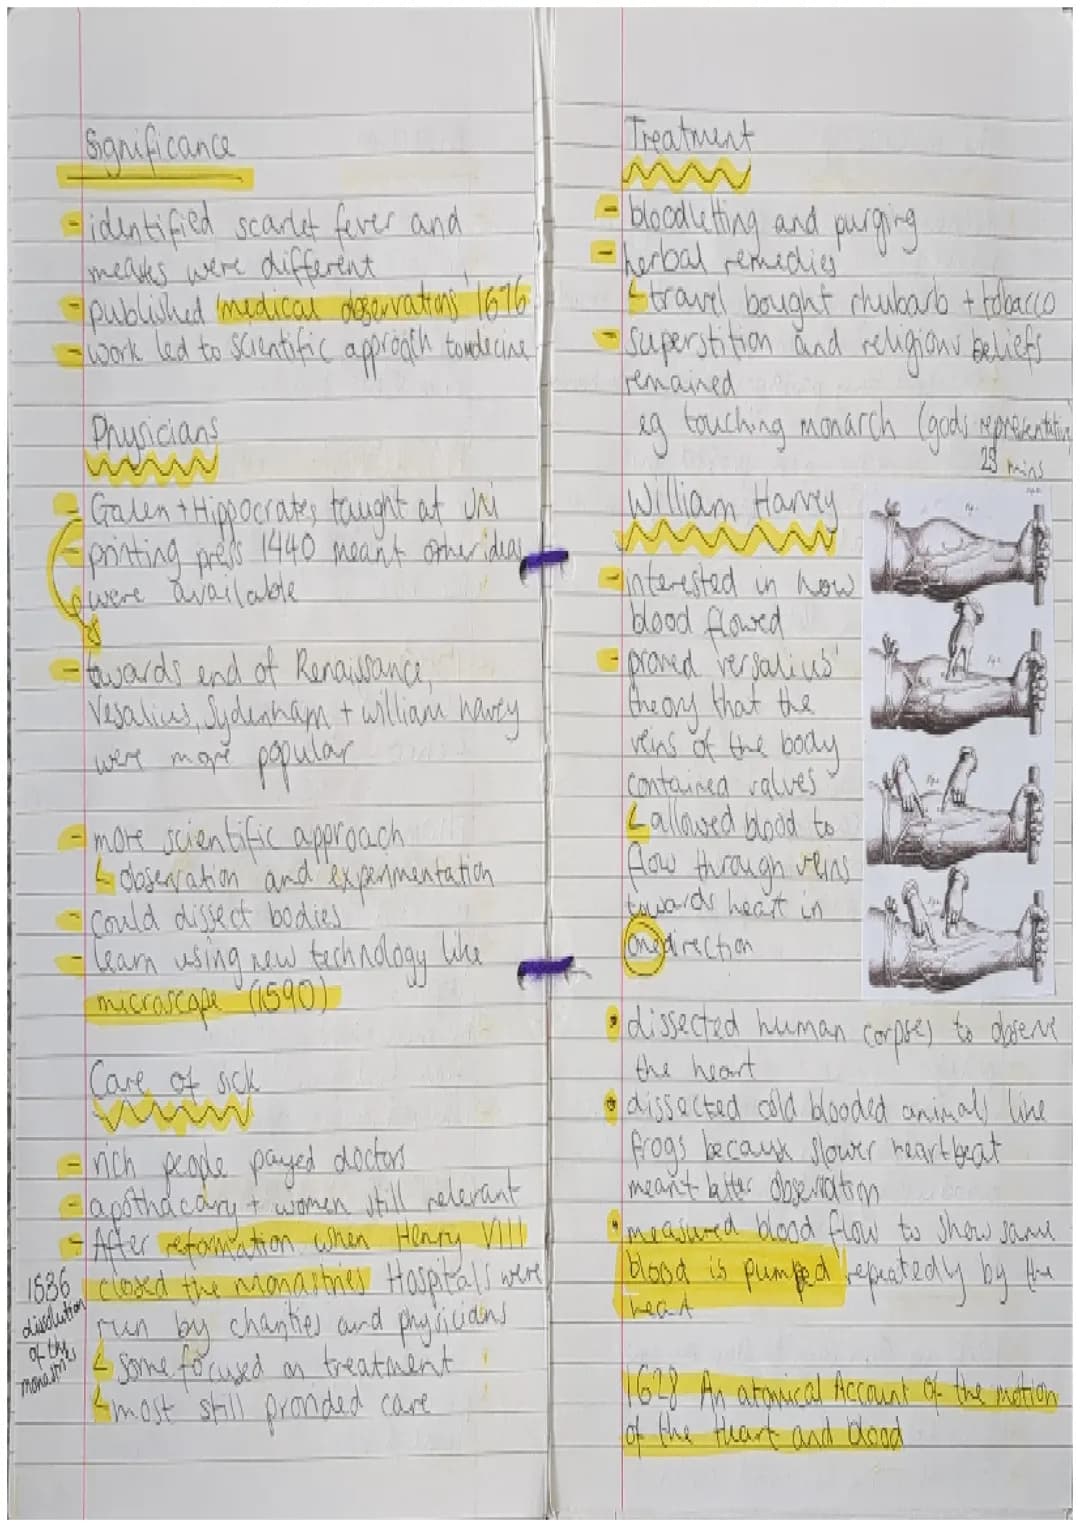 Significance
- identified scarlet fever and
measles were different
- published 'medical observations' 1676
- work led to scientific approach to medecine
Physicians
- Galen + Hippocrates taught at uni
- printing press 1440 meant other ideas
were available
- towards end of Renaissance,
Vesalius, Sydenham + william harvey
were more popular
- more scientific approach
↳ observation and experimentation
- could dissect bodies
- learn using new technology like
microscope (1590)
Care of sick
- rich people payed doctors
- apothacary + women still relevant
- After reformation when Henry VIII
closed the monastries Hospitals were
run by charities and physicians
↳ some focused on treatment
↳ most still provided care
1536
dissolution
of the
monastries
Treatment
- bloodletting and purging
- herbal remedies
↳ travel bought rhubarb + tobacco
- superstition and religious beliefs
remained
eg touching monarch (gods representative)
25 mins
William Harvey
- interested in how
blood flowed
- proved versalius'
theory that the
veins of the body
contained valves
↳ allowed blood to
flow through veins
towards heart in
one direction
• dissected human corpses to observe
the heart
• dissected cold blooded animals like
frogs because slower heartbeat
meant better observation
• measured blood flow to show same
blood is pumped repeatedly by the
heart
1628 An atomical Account of the motion
of the Heart and blood